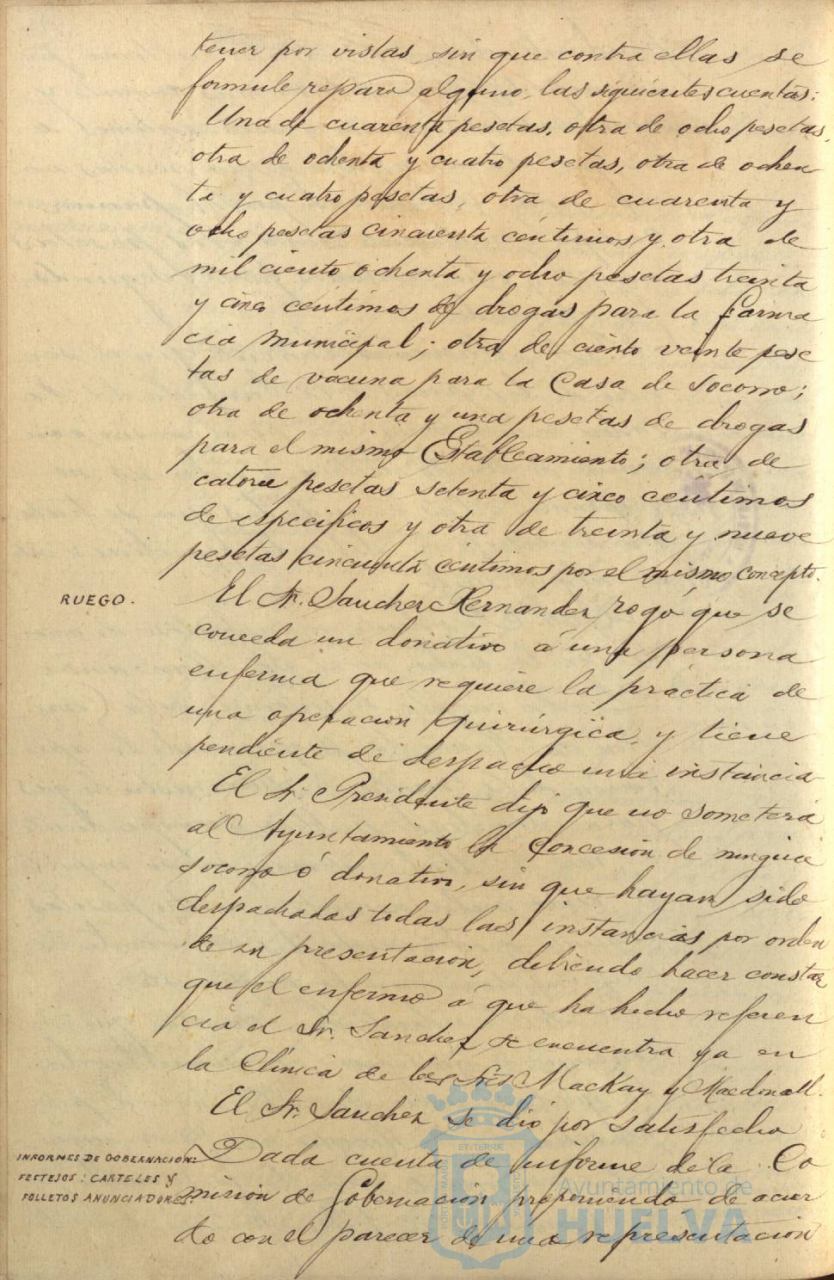 tener por vistas, sin que contra ellas se
formule reparo alguno, las siguientes cuentas:
Una de cuarenta pesetas, otra de ocho pesetas,
otra de ochenta y cuatro pesetas, otra de ochen
ta y cuatro pesetas, otra de cuarenta y
ocho pesetas cincuenta céntimos y otra de
mil ciento ochenta y ocho pesetas treinta
y cinco céntimos de drogas para la Farma
cia Municipal; otra de ciento veinte pese
tas de vacuna para la Casa de Socorro;
otra de ochenta y una pesetas de drogas
para el mismo Establecimiento; otra de
catorce pesetas setenta y cinco céntimos
de específicos y otra de treinta y nueve
pesetas cincuenta céntimos por el mismo concepto.
RUEGO.
El Sr. Sanchez Hernandez rogó que se
conceda un donativo á una persona
enferma que requiere la práctica de
una operación quirúrgica, y tiene
pendiente de despacho una instancia
El Sr. Presidente dijo que no someterá
al Ayuntamiento la concesión de ningún
socorro ó donativo, sin que hayan sido
despachadas todas las instancias por orden
de su presentación, debiendo hacer constar
que el enfermo á que ha hecho referen
cia el Sr. Sanchez se encuentra ya en
la Clínica de los Sres Mackay y Macdonall.
El Sr. Sanchez se dió por satisfecho
INFORMES DE GOBERNACION:
FESTEJOS: CARTELES Y
FOLLETOS ANUNCIADORES.
Dada cuenta de informe de la Co
misión de Gobernación proponiendo, de acuer
do con el parecer de una representación
Ayuntamiento de
HUELVA